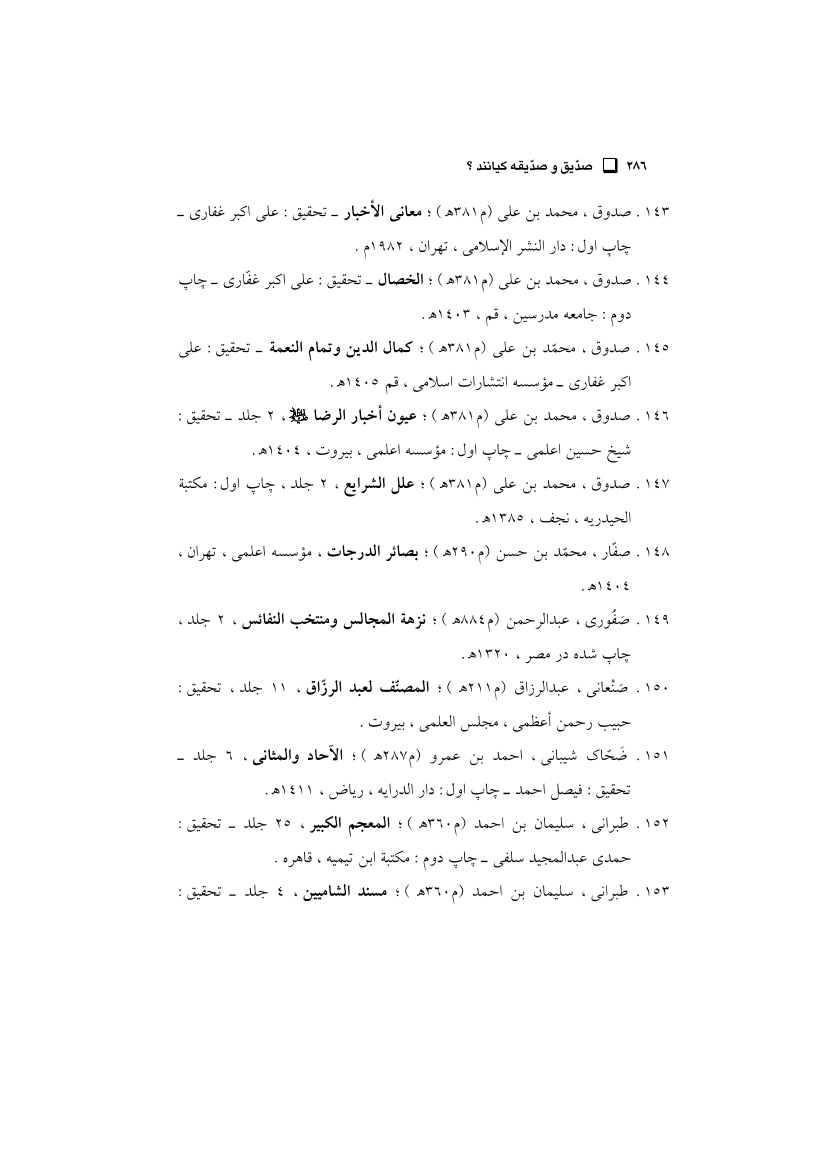 ٢٨٦ ❏ صدّيق و صدّيقه كيانند ؟
١٤٣ . صدوق ، محمد بن على (م٣٨١ه‍ ) ؛ معانى الأخبار ـ تحقيق : على اكبر غفارى ـ
چاپ اول : دار النشر الإسلامى ، تهران ، ١٩٨٢م .
١٤٤ . صدوق ، محمد بن على (م٣٨١ه‍ ) ؛ الخصال ـ تحقيق : على اكبر غفّارى ـ چاپ
دوم : جامعه مدرسين ، قم ، ١٤٠٣ه‍ .
١٤٥ . صدوق ، محمّد بن على (م٣٨١ه‍ ) ؛ كمال الدين وتمام النعمة ـ تحقيق : على
اكبر غفارى ـ مؤسسه انتشارات اسلامى ، قم ١٤٠٥ه‍ .
١٤٦ . صدوق ، محمد بن على (م٣٨١ه‍ ) ؛ عيون أخبار الرضا ، ٢ جلد ـ تحقيق :
شيخ حسين اعلمى ـ چاپ اول : مؤسسه اعلمى ، بيروت ، ١٤٠٤ه‍ .
١٤٧ . صدوق ، محمد بن على (م٣٨١ه‍ ) ؛ علل الشرايع ، ٢ جلد ، چاپ اول : مكتبة
الحيدريه ، نجف ، ١٣٨٥ه‍ .
١٤٨ . صفّار ، محمّد بن حسن (م٢٩٠ه‍ ) ؛ بصائر الدرجات ، مؤسسه اعلمى ، تهران ،
١٤٠٤ه‍ .
١٤٩ . صَفُورى ، عبدالرحمن (م٨٨٤ه‍ ) ؛ نزهة المجالس ومنتخب النفائس ، ٢ جلد ،
چاپ شده در مصر ، ١٣٢٠ه‍ .
١٥٠ . صَنْعانى ، عبدالرزاق (م٢١١ه‍ ) ؛ المصنّف لعبد الرزّاق ، ١١ جلد ، تحقيق :
حبيب رحمن أعظمى ، مجلس العلمى ، بيروت .
١٥١ . ضَحّاک شيبانى ، احمد بن عمرو (م٢٨٧ه‍ ) ؛ الآحاد والمثانى ، ٦ جلد ـ
تحقيق : فيصل احمد ـ چاپ اول : دار الدرايه ، رياض ، ١٤١١ه‍ .
١٥٢ . طبرانى ، سليمان بن احمد (م٣٦٠ه‍ ) ؛ المعجم الكبير ، ٢٥ جلد ـ تحقيق :
حمدى عبدالمجيد سلفى ـ چاپ دوم : مكتبة ابن تيميه ، قاهره .
١٥٣ . طبرانى ، سليمان بن احمد (م٣٦٠ه‍ ) ؛ مسند الشاميين ، ٤ جلد ـ تحقيق :